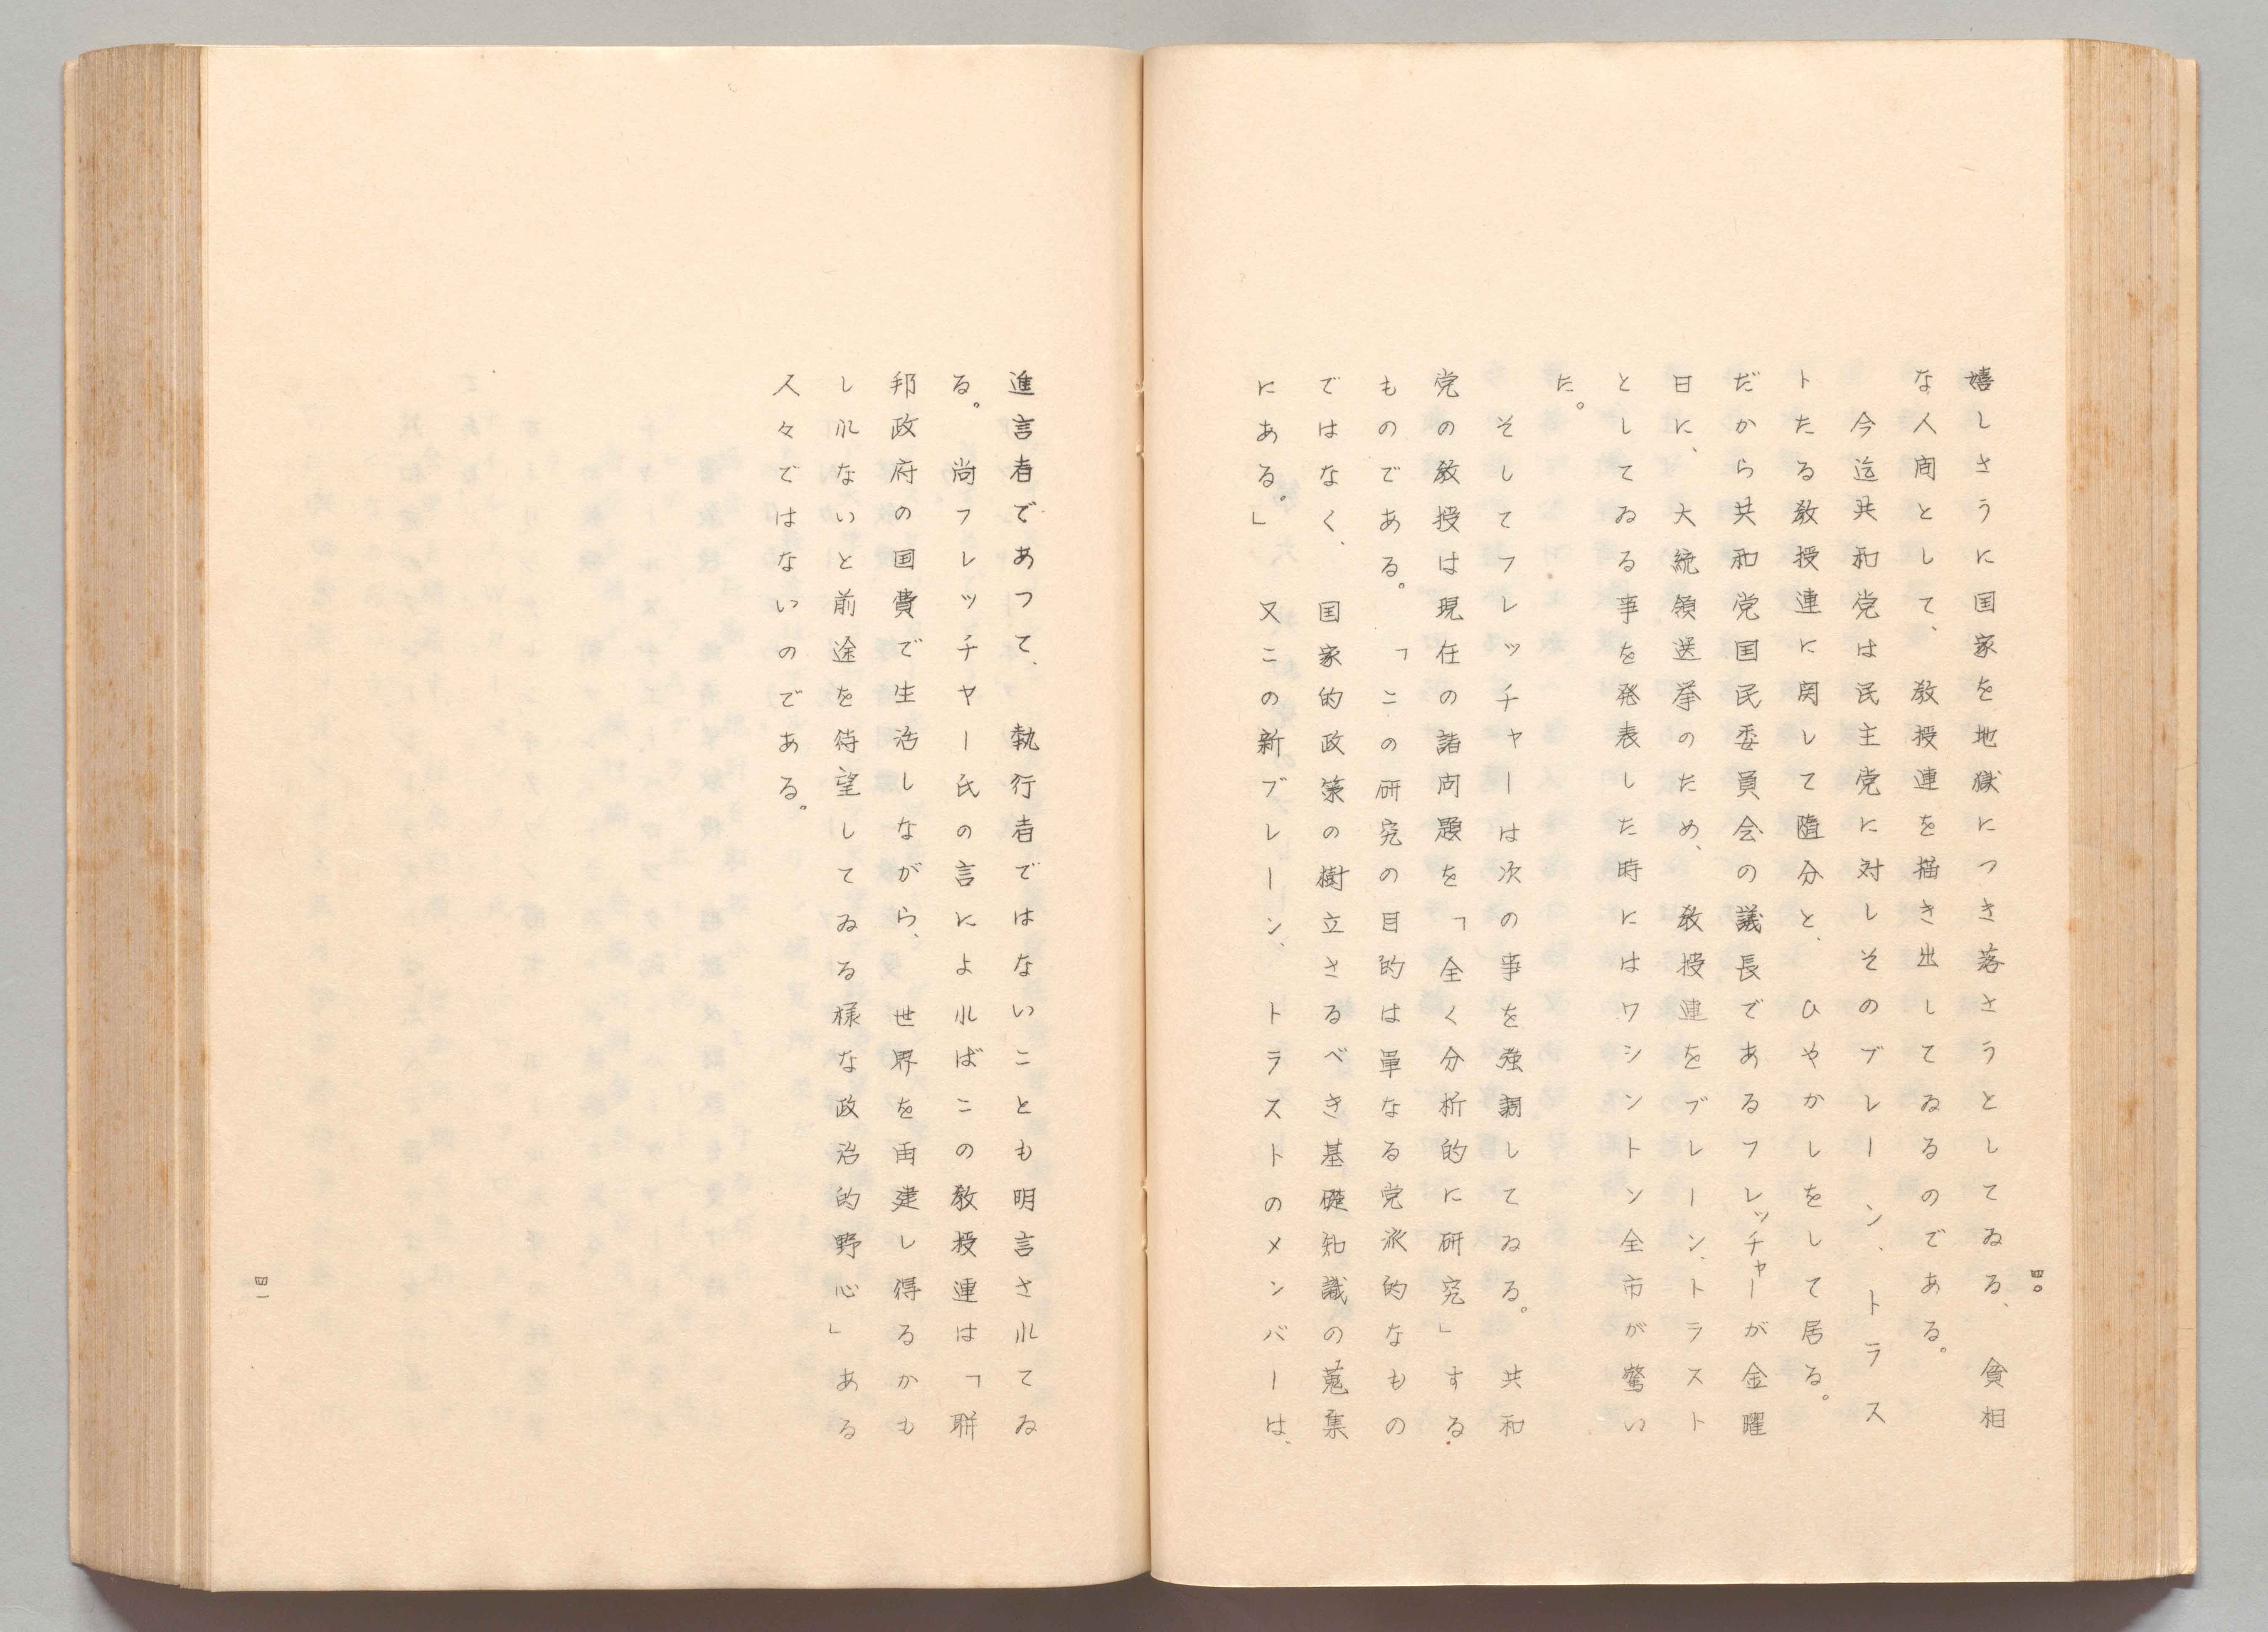 嬉しさうに国家を地獄につき落さうとしてゐる、貧相
な人间として、教授連を描き出してゐるのである。
今迄共和党は民主党に対しそのブレーン、トラス
トたる教授連に関して随分と、ひやかしをして居る。
だから共和党国民委員会の議長であるフレッチャーが金曜
日に、大統領送挙のため、教授連をブレーン、トラスト
としてゐる事を発表した時にはワシントン全市が驚い
た。
そしてフレッチャーは次の事を強調してゐる。共和
党の教授は現在の諸问題を「全く分析的に研究」する
ものである。「この研究の目的は単なる党派的なもの
ではなく、国家的政策の樹立さるべき基礎知識の蒐集
にある。」又この新ブレーン、トラストのメンバーは、
四〇
進言者であつて、執行者ではないことも明言されてゐ
る。尚フレッチャー氏の言によればこの教授連は「聯
邦政府の国費で生活しながら、世界を再建し得るかも
しれないと前途を待望してゐる様な政治的野心」ある
人々ではないのである。
四一